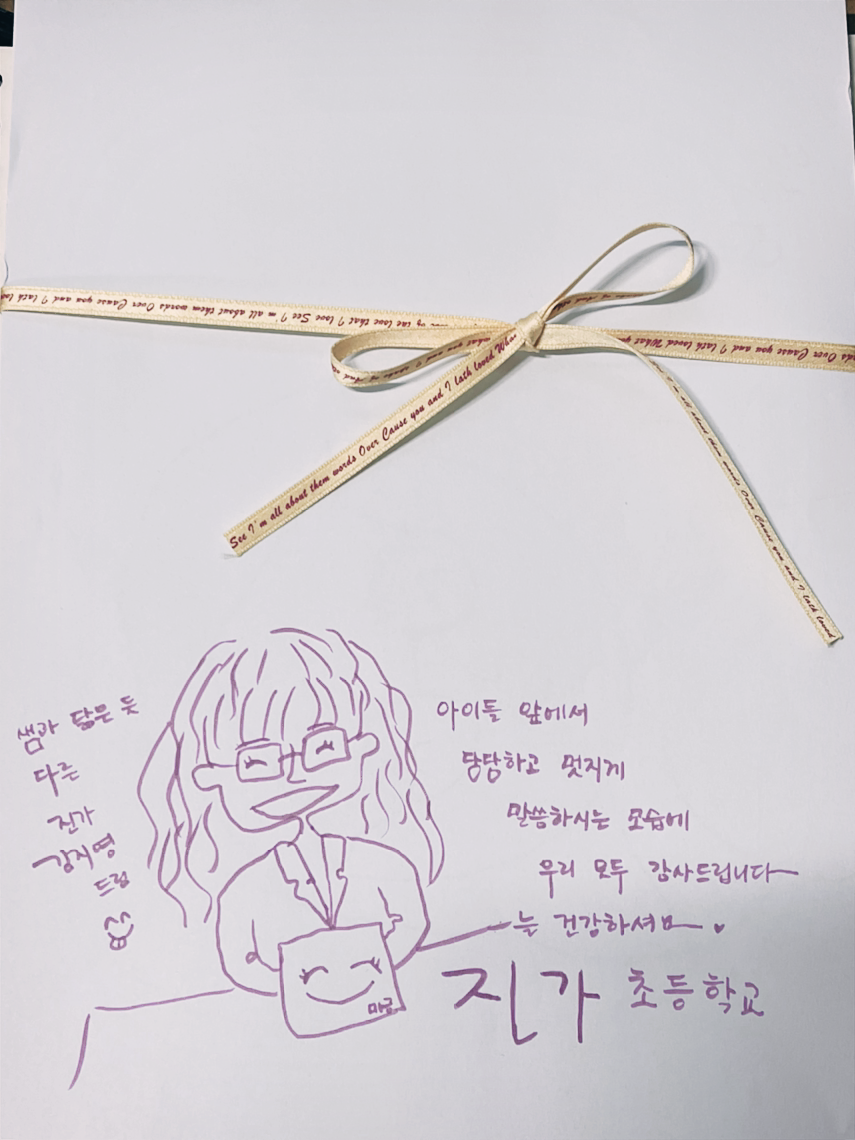 See I'm all about them words Over Cause you and I lath loved What
샘과 닮은 듯
다른
진가
강지영
드림
아이들 앞에서
당당하고 멋지게
말씀하시는 모습에
우리 모두 감사드립니다~
늘 건강하셔요~
진가 초등학교